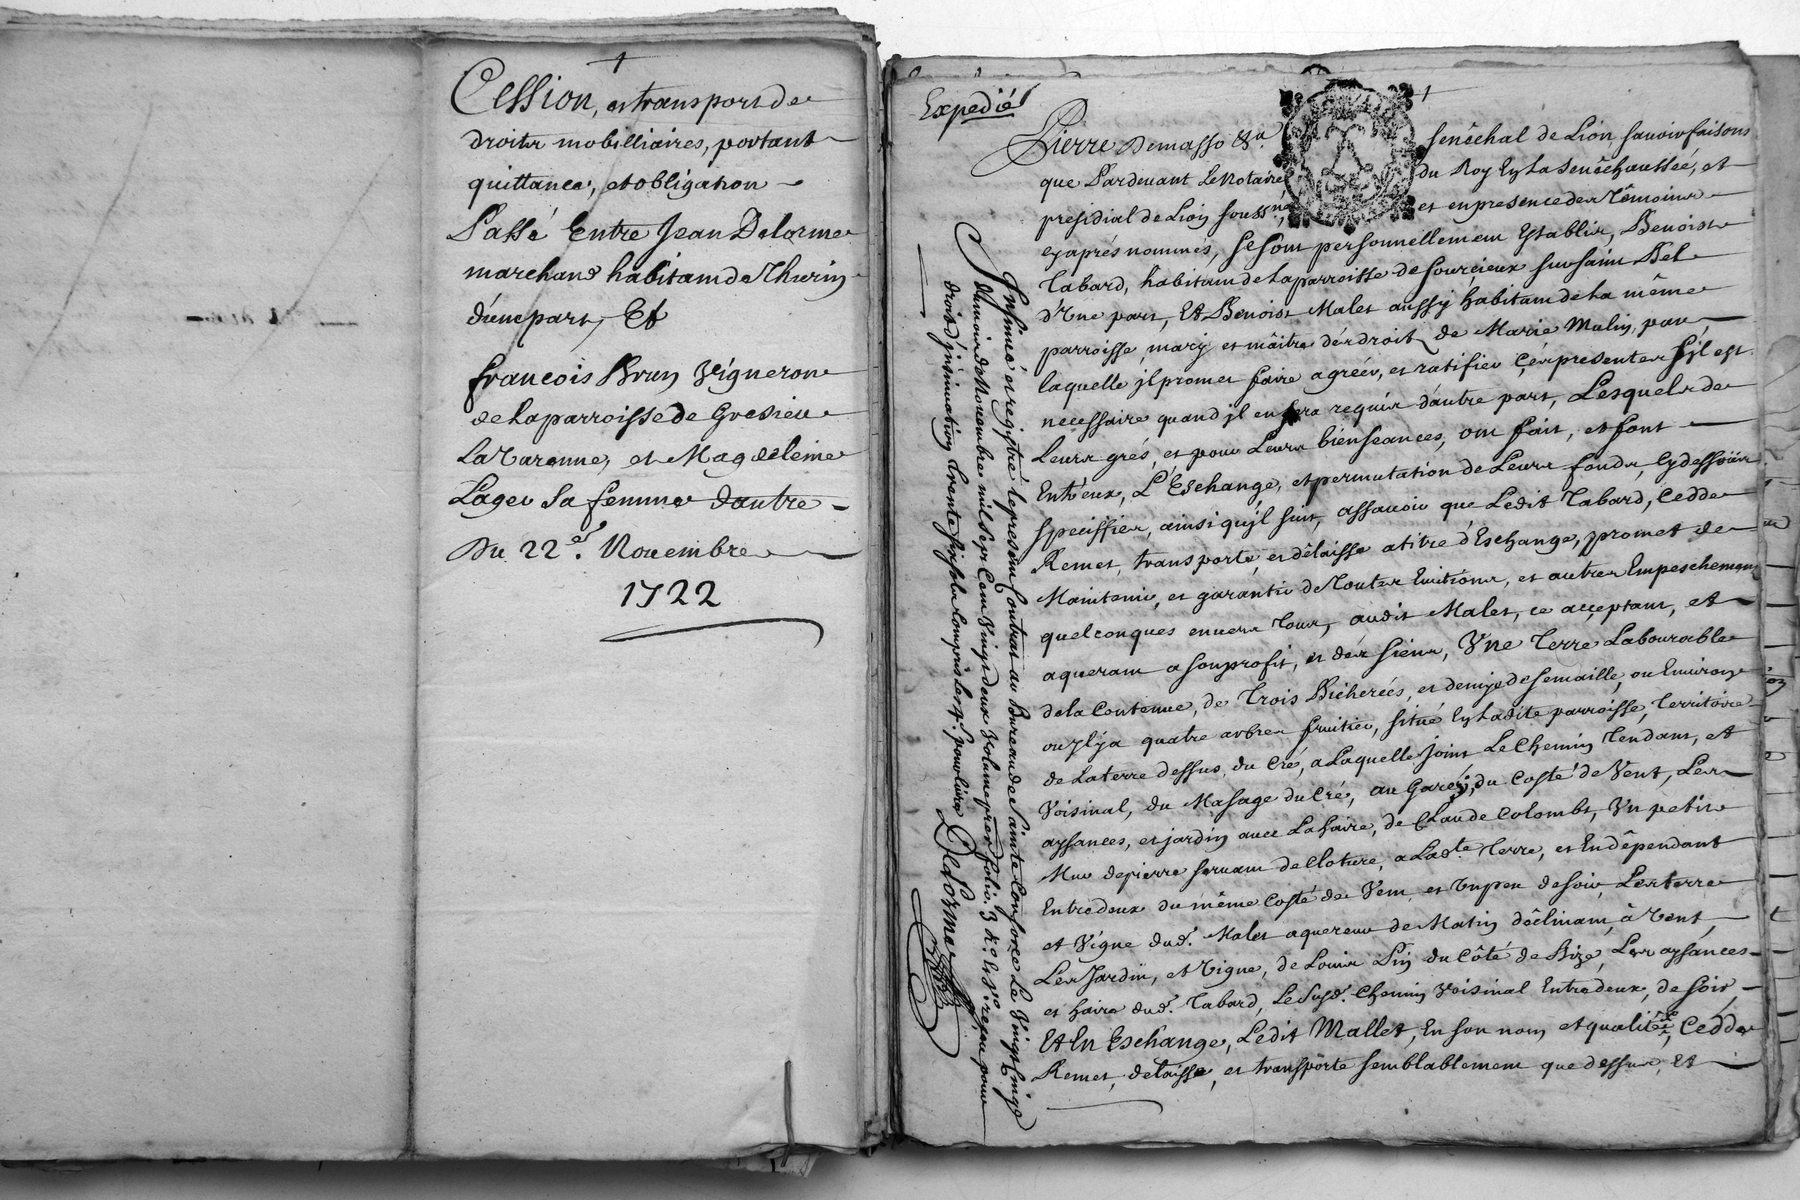 Cession, et transport de
droits mobilliaires, portant
quittance, et obligation
Passé Entre Jean Delorme
marchand habitant de Thurin
d'une part, Et
francois Brun Vigneron
de la parroisse de Gresieu
La Varenne, et Magdeleine
Lager sa femme dautre
Du 22.e Nouembre
1722
Expedié
Pierre Demasso &a senêchal de Lion sauoir faisons
que Pardeuant Le Notaire du Roy En La senêchaussée, et
presidial de Lion soussné, et en presence des Têmoins
cy aprés nommés, se sont personnellement Establis, Benoist
Tabard, habitant de la parroisse de sourcieux sur saint Bel
d'Vne part, Et Benoist Malet aussy habitant de la même
parroisse, mary et mâitre dés droits de Marie Mulin, par
laquelle jl promet faire agréer, et ratifier cés presentes s'jl est
necessaire quand jl en sera requis d'autre part, Lesquels de
Leurs grés, et pour Leurs bienseances, ont fait, et font
Entr'eux, L'Eschange, et permutation de Leurs fonds, Cy dessous
speciffiés, ainsi qu'jl suit, assauoir que Ledit Tabard, Cedde
Remet, transporte, et dêlaisse a titre d'Eschange, promet de
Maintenir, et garantir de Toutes Euictions, et autres Empeschemens
quelconques enuers tous, audit Malet, ce acçeptant, et
aquerant a son profit, et dés siens, Vne Terre Labourable
de la Contenue, de Trois Bicherées, et demye de semaille, ou Enuiron
ou jl y a quatre arbres fruitier, situé En Ladite parroisse, Territoire
de La terre dessus, du Cré, a Laquelle joint Le Chemin Tendant, et
Voisinal, du Masage du Cré, au Garét, du Costé de Vent, Les
aysances, et jardin auec La haire, de Claude Colombt, Vn petit
Mur de pierre seruant de Cloture, a Lad.te Terre, et En dêpendant
Entredeux du même Costé de Vent, et Vn peu de soir, Les terre
et Vigne dud.t Malet aquereur de Matin dêclinant, â Vent,
Les Jardin, et Vigne, de Louis Pin du Côté de Bize, Les aysances
et haire dud.t Tabard, Le Susd.t Chemin Voisinal Entredeux, de soir,
Et En Eschange, Ledit Mallet, En son nom et qualité, Cedde
Remet, delaisse, et transporte semblablement que dessus, Et
Insinué et registré le present Contrat au Bureau de Sainte Consorce Le Vingt Cinq
du mois de Nouembre mil sept Cent Vingt deux Volume prer folio 3 R.o Et reçeu pour
droit d'jnsinuation trente six sols Compris les 4.s pour liure Delorme